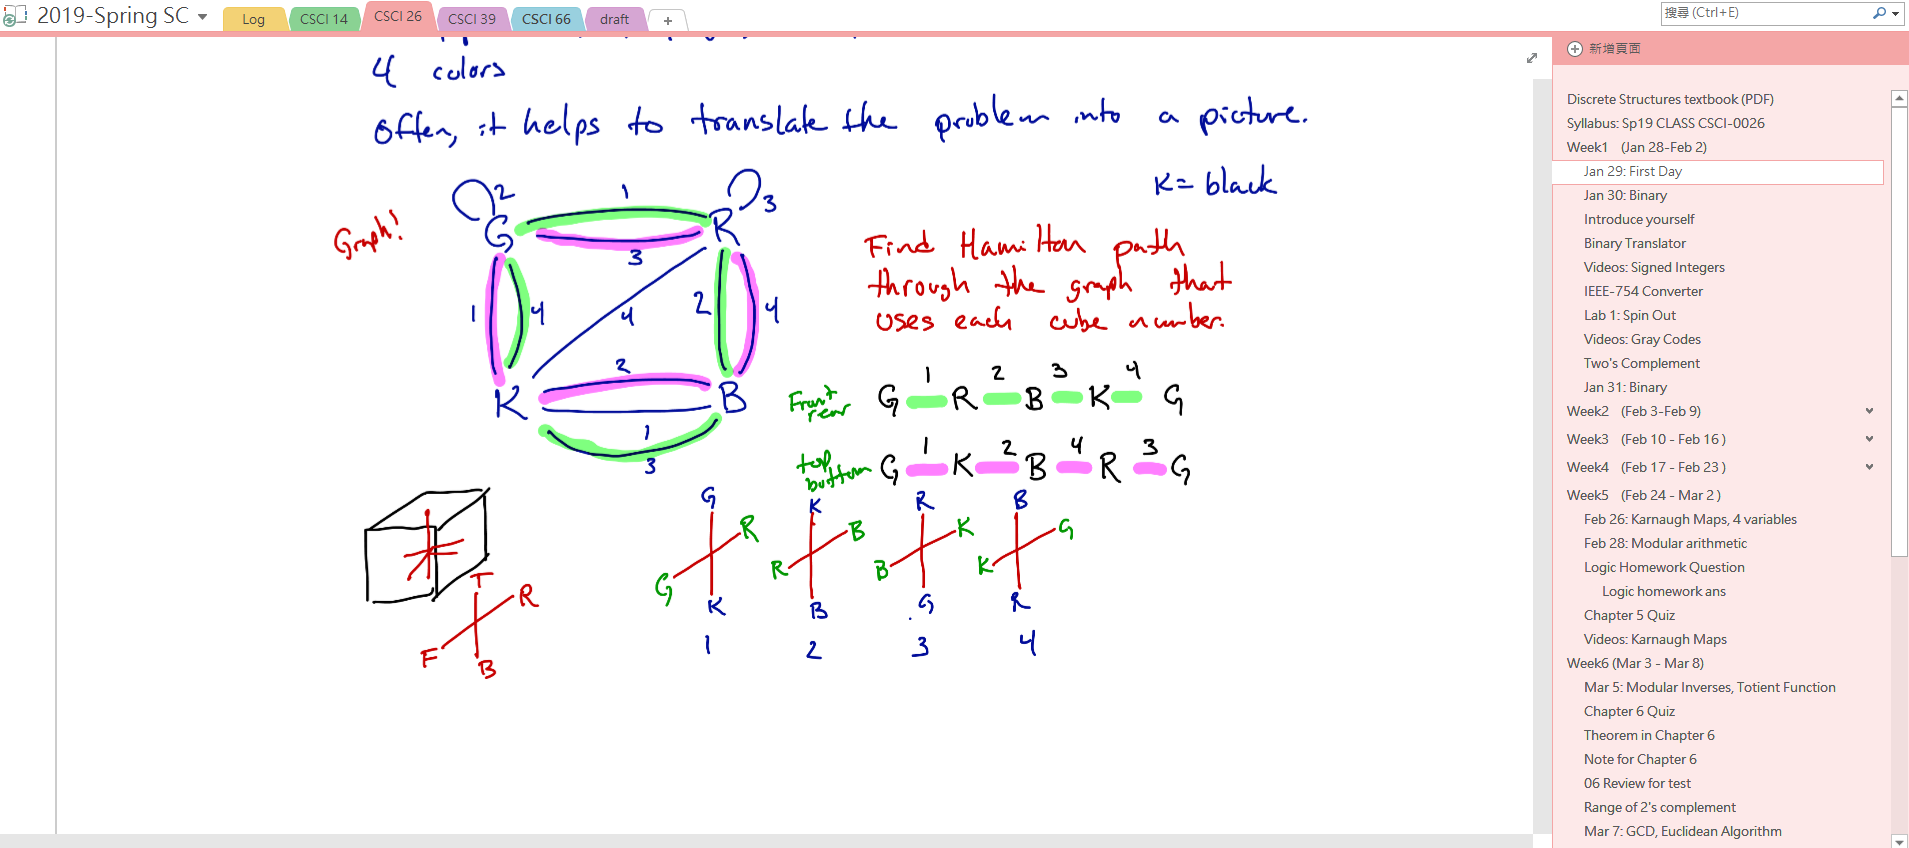 2019-Spring SC
Log
CSCI 14
CSCI 26
CSCI 39
CSCI 66
draft
+
搜尋 (Ctrl+E)
4 colors
Often, it helps to translate the problem into a picture.
K = black
Graph!
2
1
3
G
R
3
1
4
4
2
4
2
K
B
1
3
Find Hamilton path
through the graph that
uses each cube number.
Front
rear
1 2 3 4
G R B K G
top
bottom
1 2 4 3
G K B R G
T
R
F
B
G
R
G
K
1
K
B
R
B
2
R
K
B
G
3
B
G
K
R
4
新增頁面
Discrete Structures textbook (PDF)
Syllabus: Sp19 CLASS CSCI-0026
Week1 (Jan 28-Feb 2)
Jan 29: First Day
Jan 30: Binary
Introduce yourself
Binary Translator
Videos: Signed Integers
IEEE-754 Converter
Lab 1: Spin Out
Videos: Gray Codes
Two's Complement
Jan 31: Binary
Week2 (Feb 3-Feb 9)
Week3 (Feb 10 - Feb 16 )
Week4 (Feb 17 - Feb 23 )
Week5 (Feb 24 - Mar 2 )
Feb 26: Karnaugh Maps, 4 variables
Feb 28: Modular arithmetic
Logic Homework Question
Logic homework ans
Chapter 5 Quiz
Videos: Karnaugh Maps
Week6 (Mar 3 - Mar 8)
Mar 5: Modular Inverses, Totient Function
Chapter 6 Quiz
Theorem in Chapter 6
Note for Chapter 6
06 Review for test
Range of 2's complement
Mar 7: GCD, Euclidean Algorithm